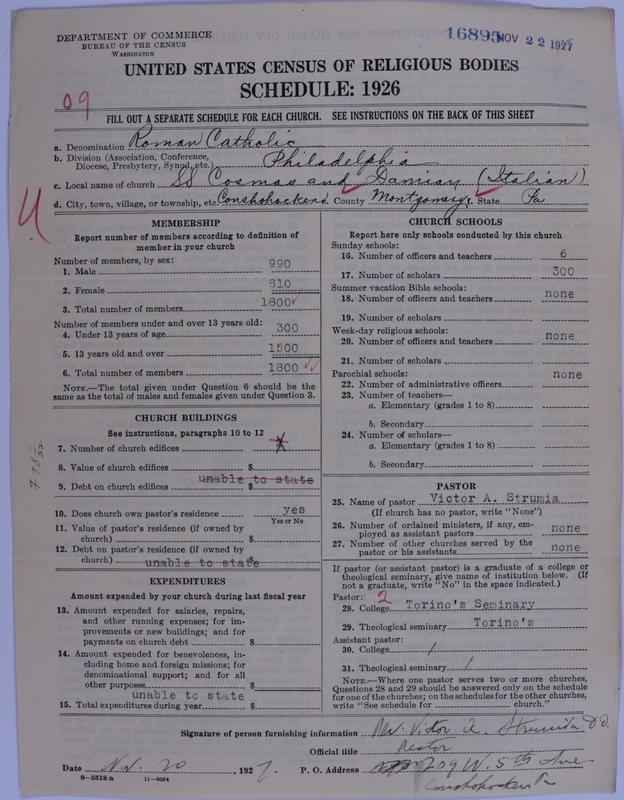 DEPARTMENT OF COMMERCE
BUREAU OF THE CENSUS
WASHINGTON
16895 NOV 22 1927
UNITED STATES CENSUS OF RELIGIOUS BODIES
SCHEDULE: 1926
09
FILL OUT A SEPARATE SCHEDULE FOR EACH CHURCH. SEE INSTRUCTIONS ON THE BACK OF THIS SHEET
a. Denomination Roman Catholic
b. Division (Association, Conference, Diocese, Presbytery, Synod, etc.) Philadelphia
c. Local name of church SS Cosmas and Damian (Italian)
d. City, town, village, or township, etc. Conshohocken County Montgomery State Pa
MEMBERSHIP
Report number of members according to definition of
member in your church
Number of members, by sex:
1. Male 990
2. Female 810
3. Total number of members 1800
Number of members under and over 13 years old:
4. Under 13 years of age 300
5. 13 years old and over 1500
6. Total number of members 1800
NOTE.—The total given under Question 6 should be
same as the total of males and females given under Question 3.
CHURCH BUILDINGS
See instructions, paragraphs 10 to 12
7. Number of church edifices
8. Value of church edifices $
unable to state
9. Debt on church edifices $
10. Does church own pastor's residence yes
Yes or No
11. Value of pastor's residence (if owned by
church) $
12. Debt on pastor's residence (if owned by
church) unable to state $
EXPENDITURES
Amount expended by your church during last fiscal year
13. Amount expended for salaries, repairs,
and other running expenses; for im-
provements or new buildings; and for
payments on church debt $
14. Amount expended for benevolences, in-
cluding home and foreign missions; for
denominational support; and for all
other purposes $
unable to state
15. Total expenditures during year $
CHURCH SCHOOLS
Report here only schools conducted by this church
Sunday schools:
16. Number of officers and teachers 6
17. Number of scholars 300
Summer vacation Bible schools:
18. Number of officers and teachers none
19. Number of scholars
Week-day religious schools:
20. Number of officers and teachers none
21. Number of scholars
Parochial schools: none
22. Number of administrative officers
23. Number of teachers—
a. Elementary (grades 1 to 8)
b. Secondary
24. Number of scholars—
a. Elementary (grades 1 to 8)
b. Secondary
PASTOR
25. Name of pastor Victor A. Strumia
(If church has no pastor, write "None")
26. Number of ordained ministers, if any, em-
ployed as assistant pastors none
27. Number of other churches served by the
pastor or his assistants none
If pastor (or assistant pastor) is a graduate of a college or
theological seminary, give name of institution below. (If
not a graduate, write "No" in the space indicated.)
Pastor: 2
28. College Torino's Seminary
29. Theological seminary Torino's
Assistant pastor:
30. College /
31. Theological seminary /
NOTE.—Where one pastor serves two or more churches,
Questions 28 and 29 should be answered only on the schedule
for one of the churches; on the schedules for the other churches,
write "See schedule for church."
Signature of person furnishing information Victor A. Strumia DD.
Official title Rector
Date Nov. 20, 1927. P. O. Address 209 W. 5th Ave
8-5518 a 11-9054 Conshohocken Pa